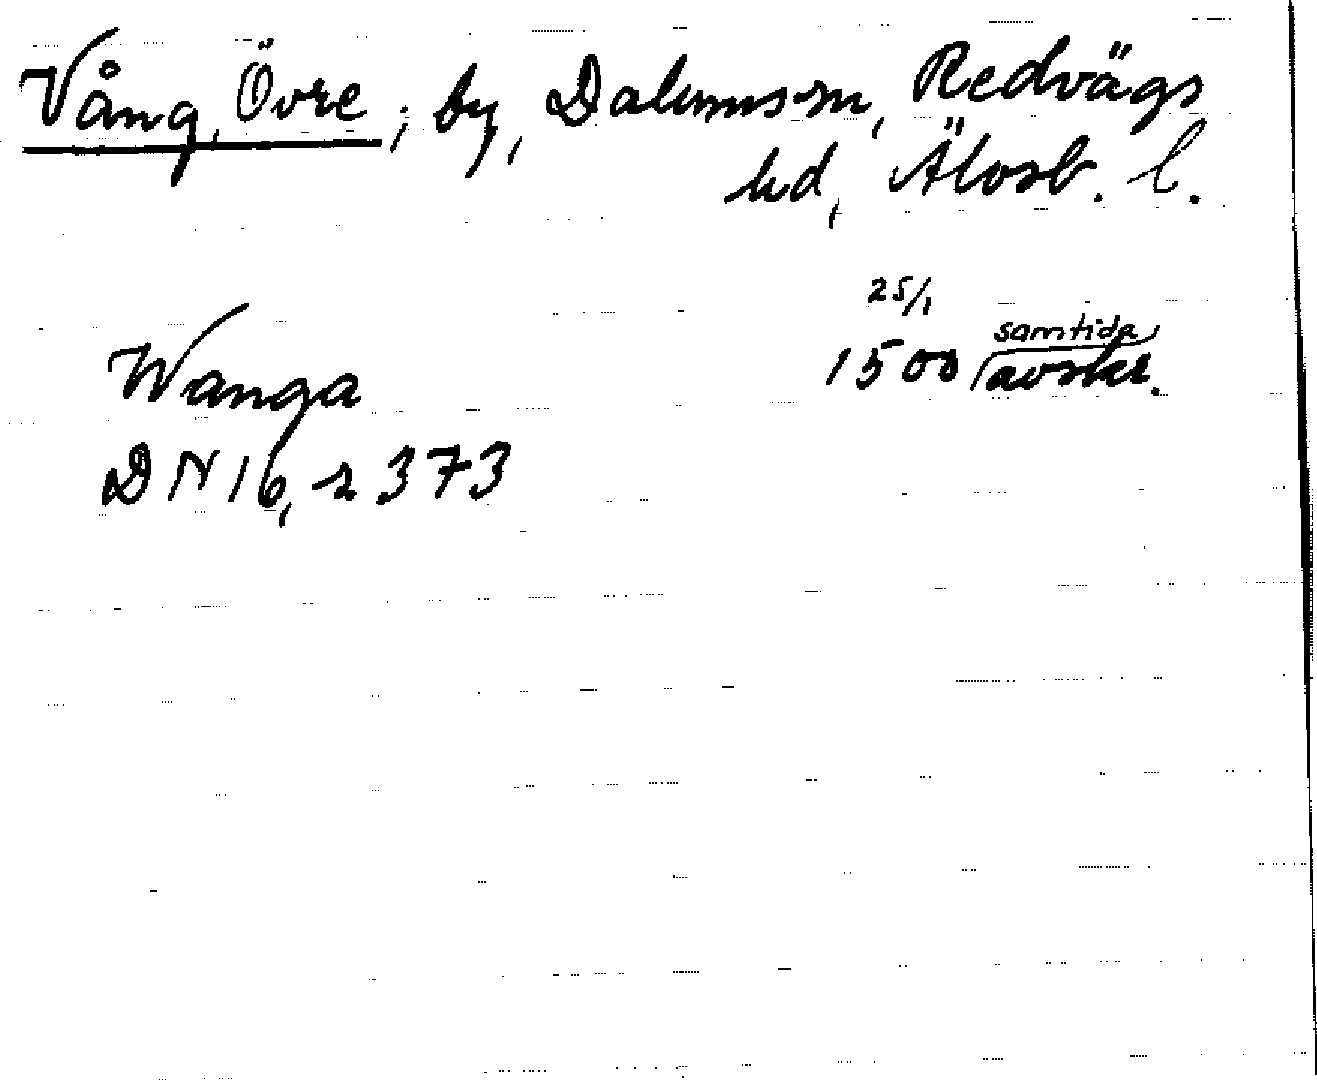 Vång, Övre; by, Dalums sn, Redvägs
hd, Älvsb. l.
25/1
Wanga 1500 samtida avskr.
DN 16, s 373